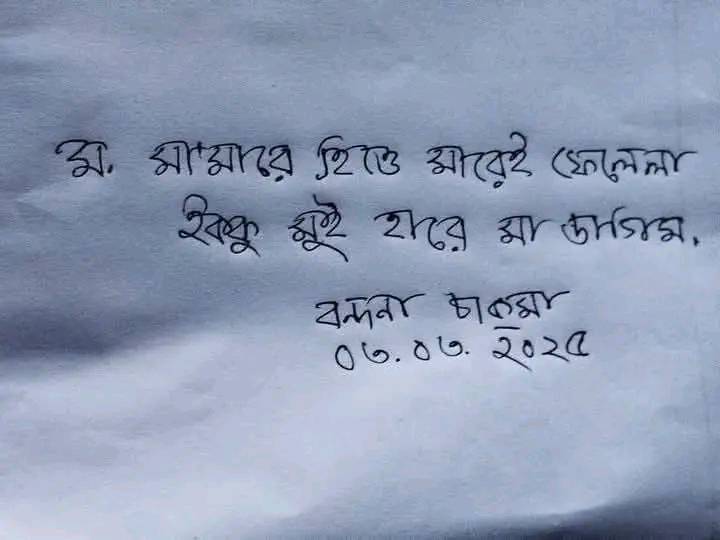 ম. মা'মারে হিত্তে মারেই ফেলেলা
ইক্কু মুই হারে মা ডাগিম.
বন্দনা চাকমা
০৩.০৩.২০২৫